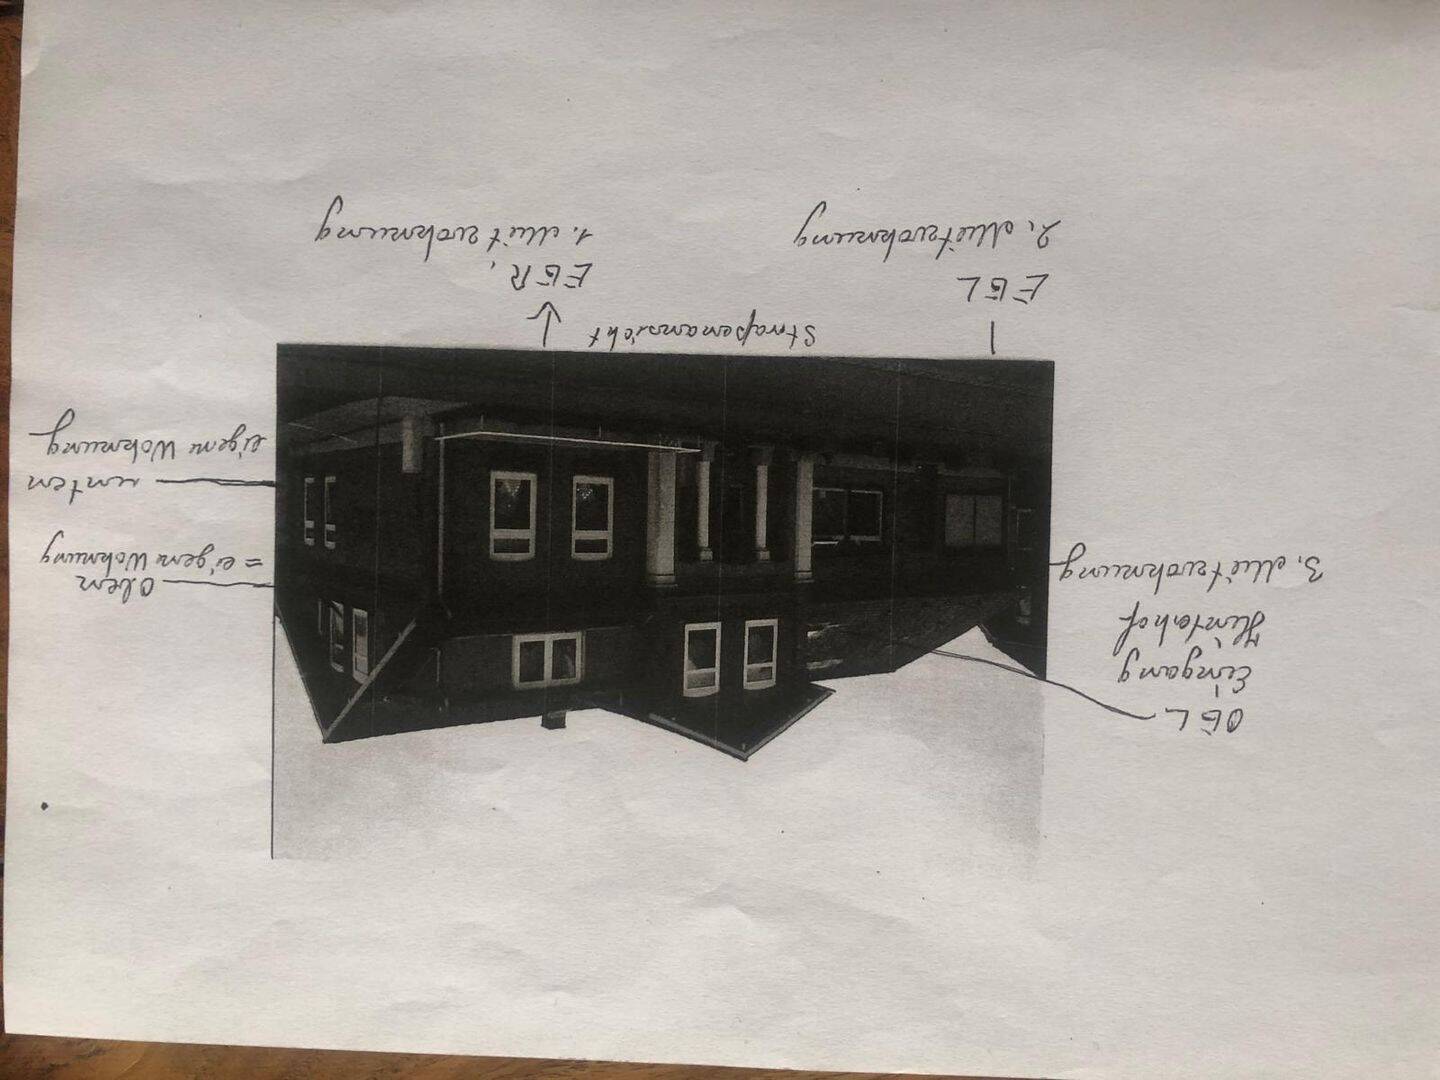 OGL
Eingang
Hinterhof
3. Mietwohnung
Oben
= eigene Wohnung
unten
eigene Wohnung
Straßenansicht
EGL
2. Mietwohnung
EGR,
1. Mietwohnung